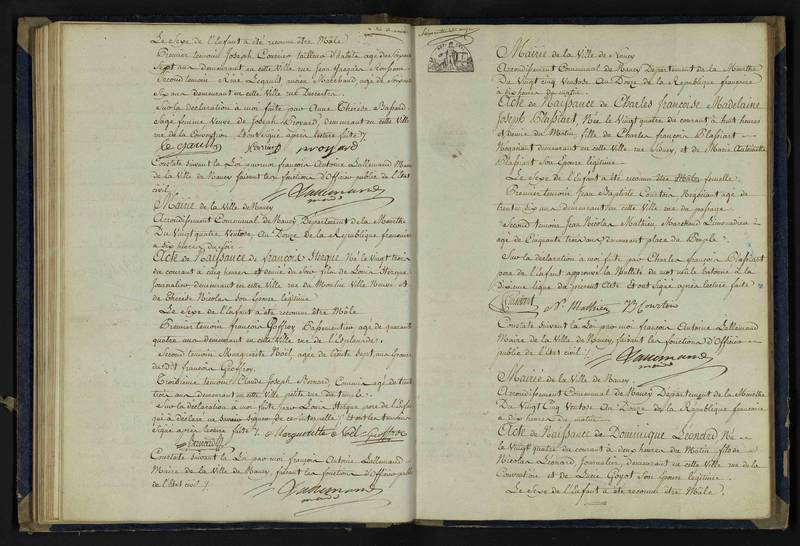 Le Sexe de l'Enfant a été reconnu être Mâle.
Premier temoin Joseph tailleur d'habits agé de Soixante
Sept ans demeurant en cette Ville rue Jean Jacques
Second temoin René Legault ancien Marchand, agé de Soixante
Six ans demeurant en cette Ville rue Descartes.
Sur la déclaration à moi faite par Anne Thérèse
Sage femme Veuve de Joseph demeurant en cette Ville
rue de la Convention Et ont Signé après lecture faite
Constaté suivant la Loi par moi françois Antoine Lallemand Maire
de la Ville de Nancy faisant les fonctions d'Officier public de l'Etat
civil
Lallemand
Mairie de la Ville de Nancy
Arrondissement Communal de Nancy Département de la Meurthe
Du Vingt quatre Ventose, An Douze de la République française
à Six heures du Soir.
Acte de Naissance de françois Sterque Né le Vingt trois
du courant à cinq heures et demie du Soir fils de Louis Sterque
Journalier demeurant en cette Ville rue du Moulin Ville Neuve et
de Thérèse Nicolas son Epouse légitime.
Le Sexe de l'Enfant a été reconnu être Mâle
Premier temoin françois Geoffroy Passementier agé de quarante
quatre ans demeurant en cette Ville rue de l'Esplanade.
Second temoin Marguerite Noël, agée de trente Sept ans Epouse
du dit françois Geoffroy.
Troisième temoin Claude Joseph Bernard Commis agé de trente
trois ans demeurant en cette Ville petite rue du temple.
Sur la déclaration à moi faite par Louis Sterque pere de l'Enfant
qui a déclaré ne Savoir Signer de ce interpellé Et ont les temoins
Signé après lecture faite Marguerite Noel Geoffroy
Bernard
Constaté suivant la Loi par moi françois Antoine Lallemand
Maire de la Ville de Nancy, faisant les fonctions d'Officier public
de l'Etat civil
Lallemand
Mairie de la Ville de Nancy
Arrondissement Communal de Nancy Département de la Meurthe
Du Vingt cinq Ventose An Douze de la République française
à dix heures du matin
Acte de Naissance de Charles Françoise Madelaine
Joseph Blassiart, Née le Vingt quatre du courant à huit heures
et demie du Matin fille de Charles françois Blassiart
Négociant demeurant en cette Ville rue et de Marie Antoinette
Blassiart Son Epouse légitime.
Le Sexe de l'Enfant a été reconnu être Mâle femelle.
Premier temoin Jean Baptiste Courtois Négociant agé de
trente Six ans demeurant en cette Ville rue du passage
Second temoin Jean Nicolas Mathieu, Marchand Limonadier
agé de Cinquante trois ans, demeurant place du Peuple.
Sur la déclaration à moi faite par Charles françois Blassiart
pere de l'Enfant approuvé la Nullité du mot mâle batonné à la
dixième ligne du present Acte Et ont Signé après lecture faite
Blassiart N. Mathieu Courtois
Constaté suivant la Loi par moi françois Antoine Lallemand
Maire de la Ville de Nancy, faisant les fonctions d'Officier
public de l'Etat civil
Lallemand
Mairie de la Ville de Nancy
Arrondissement Communal de Nancy Département de la Meurthe
Du Vingt Cinq Ventose An Douze de la République française
à dix heures du Matin
Acte de Naissance de Dominique Léonard Né
le Vingt quatre du courant à deux heures du Matin fils de
Nicolas Léonard Journalier, demeurant en cette Ville rue de la
Convention et de Lucie Goyot Son Epouse légitime.
Le Sexe de l'Enfant a été reconnu être Mâle.